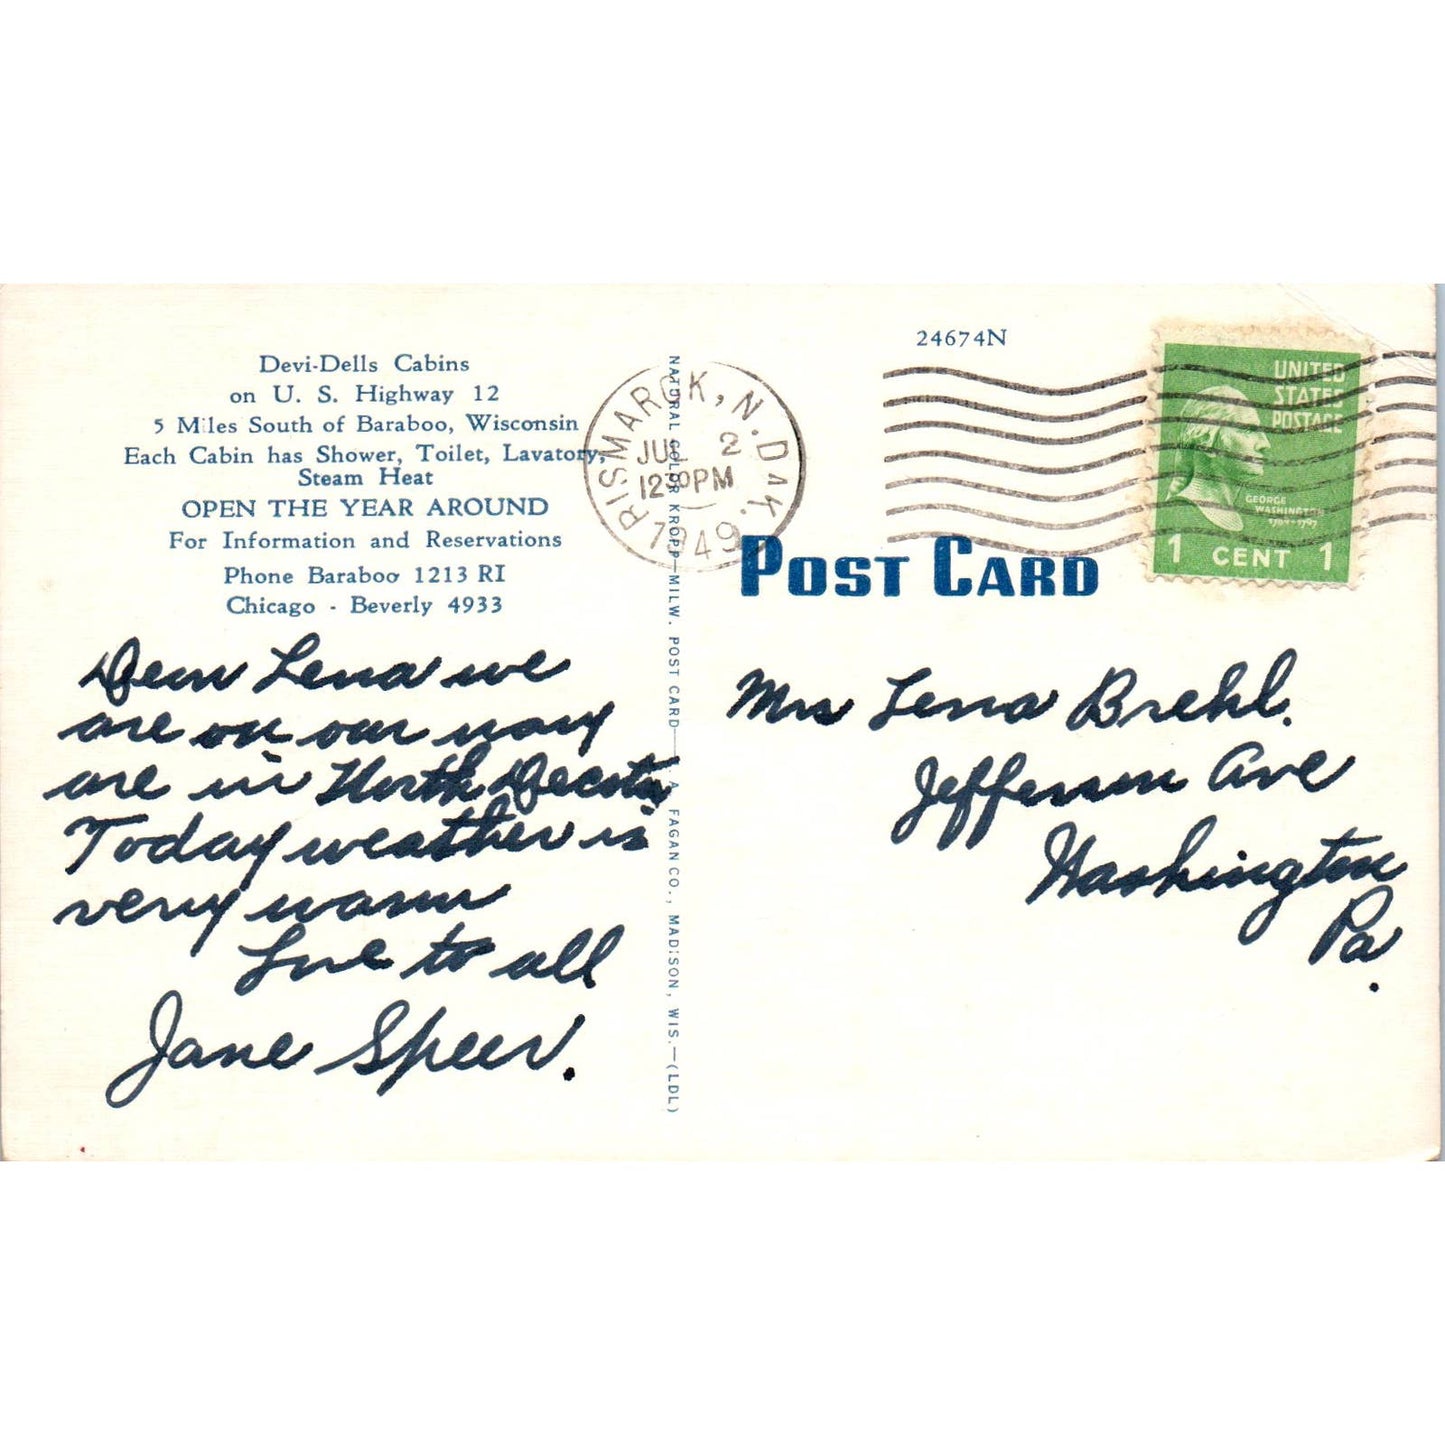 Devi-Dells Cabins
on U. S. Highway 12
5 Miles South of Baraboo, Wisconsin
Each Cabin has Shower, Toilet, Lavatory,
Steam Heat
OPEN THE YEAR AROUND
For Information and Reservations
Phone Baraboo 1213 RI
Chicago - Beverly 4933
Dear Lena we
are on our way
are in North Decota
Today weather is
very warm
Love to all
Jane Speer.
NATURAL COLOR KROPP—MILW. POST CARD—L. A. FAGAN CO., MADISON, WIS.—(LDL)
BISMARCK, N. DAK.
JUL 2
12 30 PM
1949
24674N
UNITED
STATES
POSTAGE
GEORGE
WASHINGTON
1789-1797
1 CENT 1
POST CARD
Mrs Lena Brehl.
Jefferson Ave
Washington
Pa.